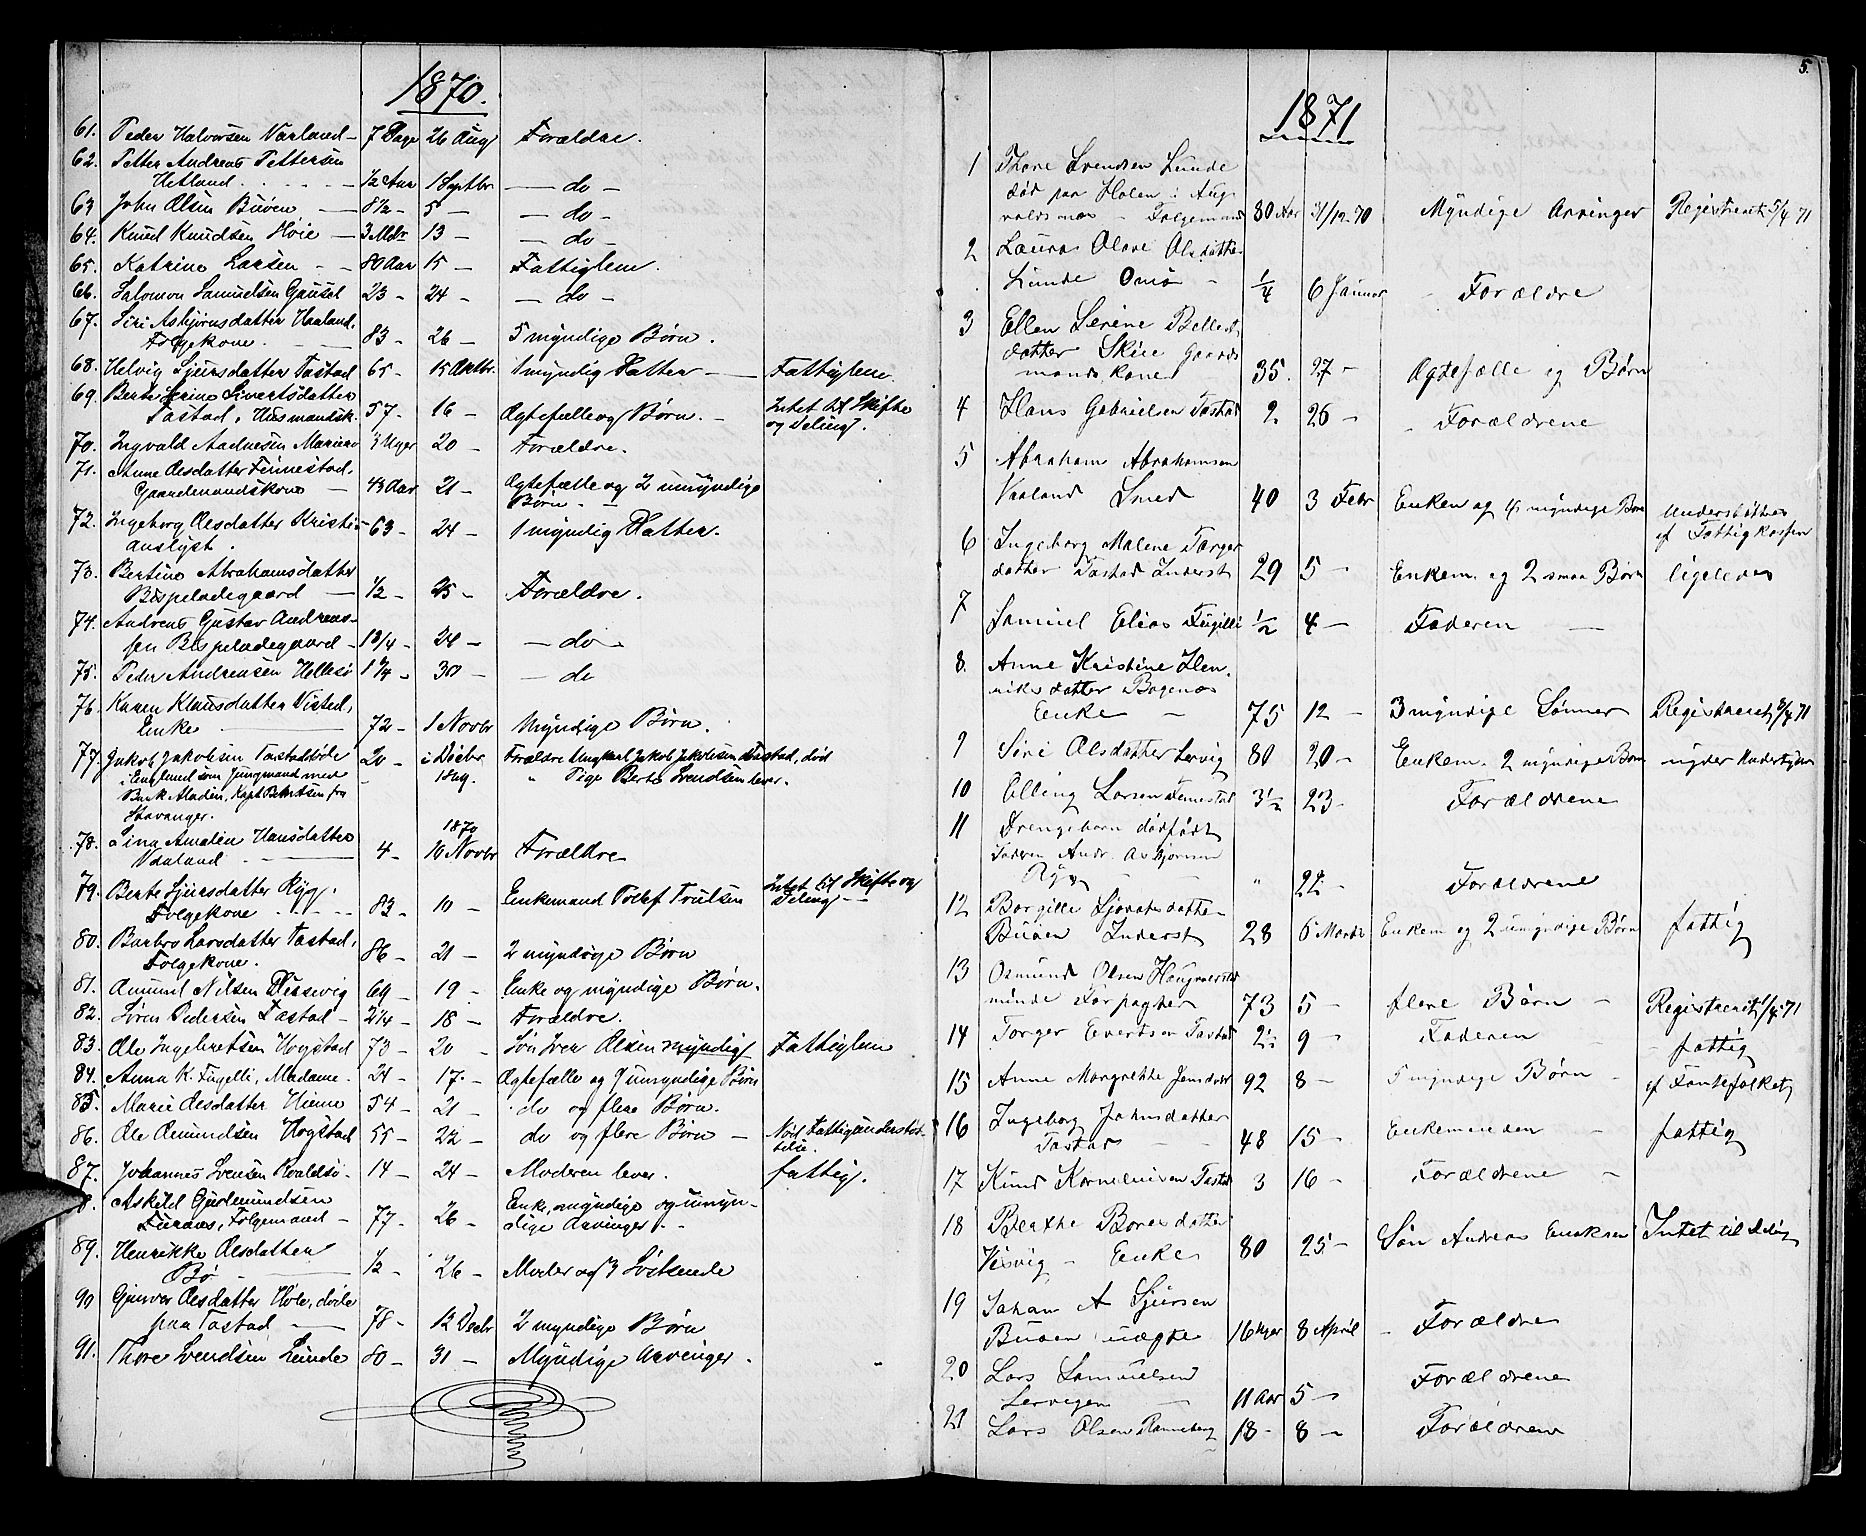 1870.
61. Peder Halvorsen Varland – 7 Dage 26 Aug Forældre.
62. Petter Andreas Pettersen
Hetland. 1/2 Aar 1 Septbr – do –
63 John Olsen Buøen – 8 1/2 – 5 – – do –
64. Knud Knudsen Høie – 3 Mdr 13 – – do –
65. Katrine Larsen – 80 Aar 15 – Fattiglem.
66. Salomon Samuelsen Gausel 23 – 24 – – do –
67. Siri Asbjørnsdatter Haaland,
Folgekone. 83 – 26 – 5 myndige Børn.
68. Helvig Sjursdatter Tastad 65 – 15 Oktbr. 1 myndig Datter – Fattiglem.
69. Berte Serine Sivertsdatter
Tastad, Husmandsk. 57 – 16 – Ægtefælle og Børn. – Intet til Skifte
og Deling.
70. Ingvald Aadnesen 3 Uger 20 – Forældre.
71. Anne Olsdatter Finnestad,
Gaardmandskone – 43 Aar 21 – Ægtefælle og 2 umyndige
Børn. –
72. Ingeborg Olsdatter Kristi-
anslyst. 63 – 24 – 1 myndig Datter.
73. Bertine Abrahamsdatter
Bispeladegaard – 1/2 – 25 – Forældre.
74. Andreas Gustav Andreas-
sen Bispeladegaard – 1 3/4 – 24 – – do –
75. Peder Andreasen Hellesø 1 1/4 – 30 – – do
76. Karen Klausdatter Vistad,
Enke 72 – 1 Novbr Myndige Børn.
77. Jakob Jakobsen Tastad døde 20 – i Decbr Forældre Ungkarl Jakob Jakobsen Tastad, død
i England som Jungmand med 1869. " Pige Berte Svendsen lever.
Bark Kapt Berntsen fra
Stavanger.
78. Sina Amalia Hansdatter 1870
Vaaland – 4 – 10 Novbr Forældre
79. Berte Sjursdatter Ryg. Intet til Skifte og
Folgekone 83 – 10 – Enkemand Tollef Trulsen Deling –
80. Barbro Larsdatter Tastad,
Folgekone. 86 – 21 – 2 myndige Børn
81. Amund Nilsen Dusevig 69 – 19 – Enke og myndige Børn.
82. Søren Pedersen Tastad – 2 1/4 – 18 – Forældre.
83. Ole Ingebretsen Hogstad 73 – 20 – Søn Iver Olsen myndig Fattiglem
84. Anna K. Fugelli, Madame. 24 – 17. – Ægtefælle og 7 umyndige Børn
85. Marie Olsdatter Hinna 54 – 21 – do og flere Børn.
86. Ole Amundsen Hogstad 55 – 22 – do og flere Børn – Nød Fattigunderstøt-
telse.
87. Johannes Svensen Kvaldsø 14 – 24 – Moderen lever. fattig.
8. Askild Gudmundsen Enke, myndige og umyn-
Furnæs, Folgemand – 77 – 26 – dige Arvinger. –
89. Henrikke Olsdatter
Bø 1/2 – 26 – Moder og 3 Søskende
90 Gunvor Olsdatter Hole, døde
paa Tastad – 78 – 12 Decbr 2 myndige Børn
91. Thore Svendsen Lunde 80 – 31 – Myndige Arvinger.
5.
1871
1 Thore Svendsen Lunde
død paa Holen i Aug-
valdsnæs – Folgemand 80 Aar 31/12 70 Myndige Arvinger Registreret 5/4 71
2 Laura Olave Olsdatter
Lunde Omø – 1/4 6 Januar – Forældre
3 Ellen Serine Pelles
datter Skiie Gaard
mands kone 35. 27 – Ægtefælle og Børn
4 Hans Gabrielsen Tastad 2 26 – – Forældrene
5 Abraham Abrahamsen
Vaaland Smed 40 3 Febr Enken og 4 myndige Børn Understøttes
af Fattigkassen
6 Ingeborg Malene Torger
datter Tastad Inderst 29 5 – Enkem. og 2 smaa Børn ligeledes
7 Samuel Elias Fugilli 1/2 4 – Faderen –
8. Anne Kristine Hen-
riks datter Bogenæs
Enke – 75 12 – 3 myndige Sønner Registreret 5/4 71
9 Siri Olsdatter Lervig 80 20 – Enkem. 2 myndige Børn nyder Understøttelse
10 Elling Larsen Finnestad 3 1/2 23 – Forældrene
11 Drengebarn dødfødt
Faderen Andr. Asbjørnsen
Ryg – " 22 – Forældrene
12 Borgille Sjovatsdatter
Buøen Inderst 28 6 Marts Enkem og 2 umyndige Børn fattig
13 Osmund Olsen
Forpagter 73 5 – flere Børn – Registreret 5/4 71
14 Torger Evertsen Tastad 2 1/2 9 – Faderen – fattig
15 Anne Margrethe 92 8 – 5 myndige Børn – af Fantefolket
16 Ingeborg Johnsdatter
Tastad – 48 15 – Enkemanden – fattig
17 Knud Korneliusen Tastad 3 16 – Forældrene –
18 Berthe Boresdatter
Visvig – Enke 80 25 – Søn Andreas Eriksen Intet til Deling
19 Johan A Sjursen
Buøen uægte 16 Uger 8 April – Forældre
20 Lars Samuelsen
Lervigen 11 Aar 5 – Forældrene
21 Lars Olsen Ramneberg 18 – 8 – Forældrene